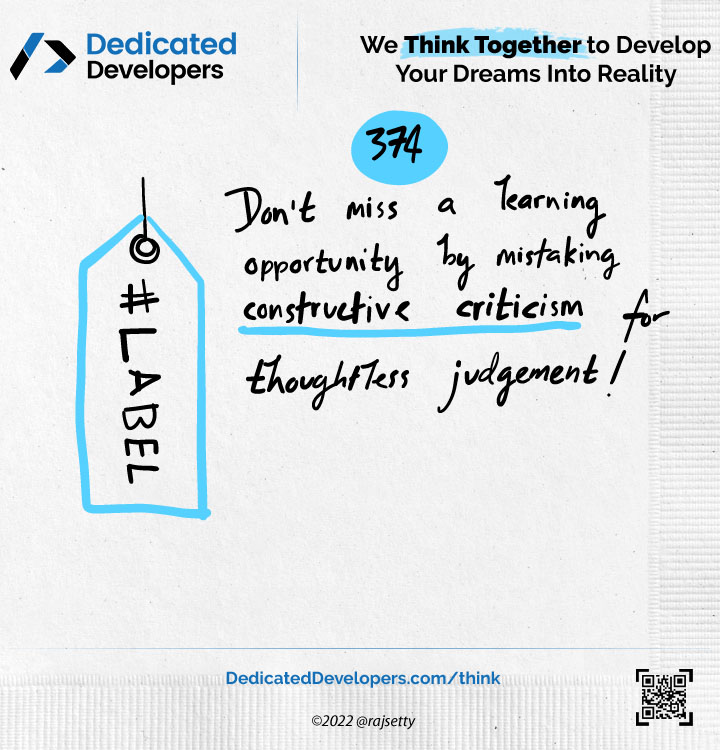 Dedicated
Developers
We Think Together to Develop
Your Dreams Into Reality
374
Don't miss a learning
opportunity by mistaking
constructive criticism for
thoughtless judgement!
#LABEL
DedicatedDevelopers.com/think
©2022 @rajsetty